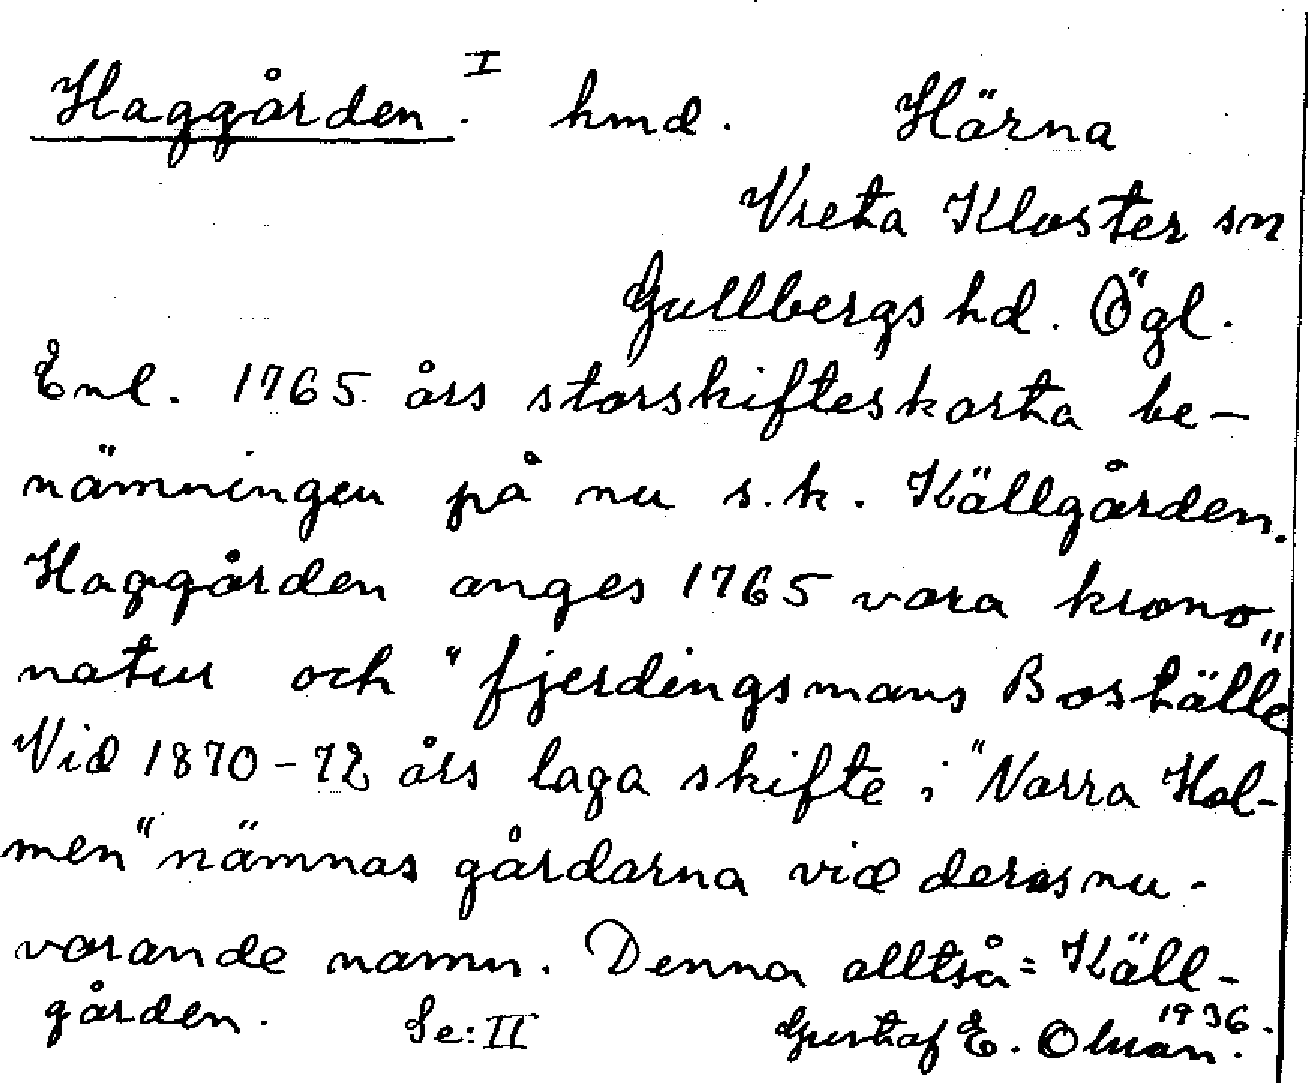 Haggården. I hmd. Härna
Vreta Kloster sn
Gullbergs hd. Ögl.
Enl. 1765 års storskifteskarta be-
nämningen på nu s.k. Källgården.
Haggården anges 1765 vara krono
natur och "fjerdingsmans Boställe"
Vid 1870-72 års laga skifte i "Norra Hol-
men" nämnas gårdarna vid deras nu-
varande namn. Denna alltså = Käll-
gården. Se: II Gustaf E. 1936.